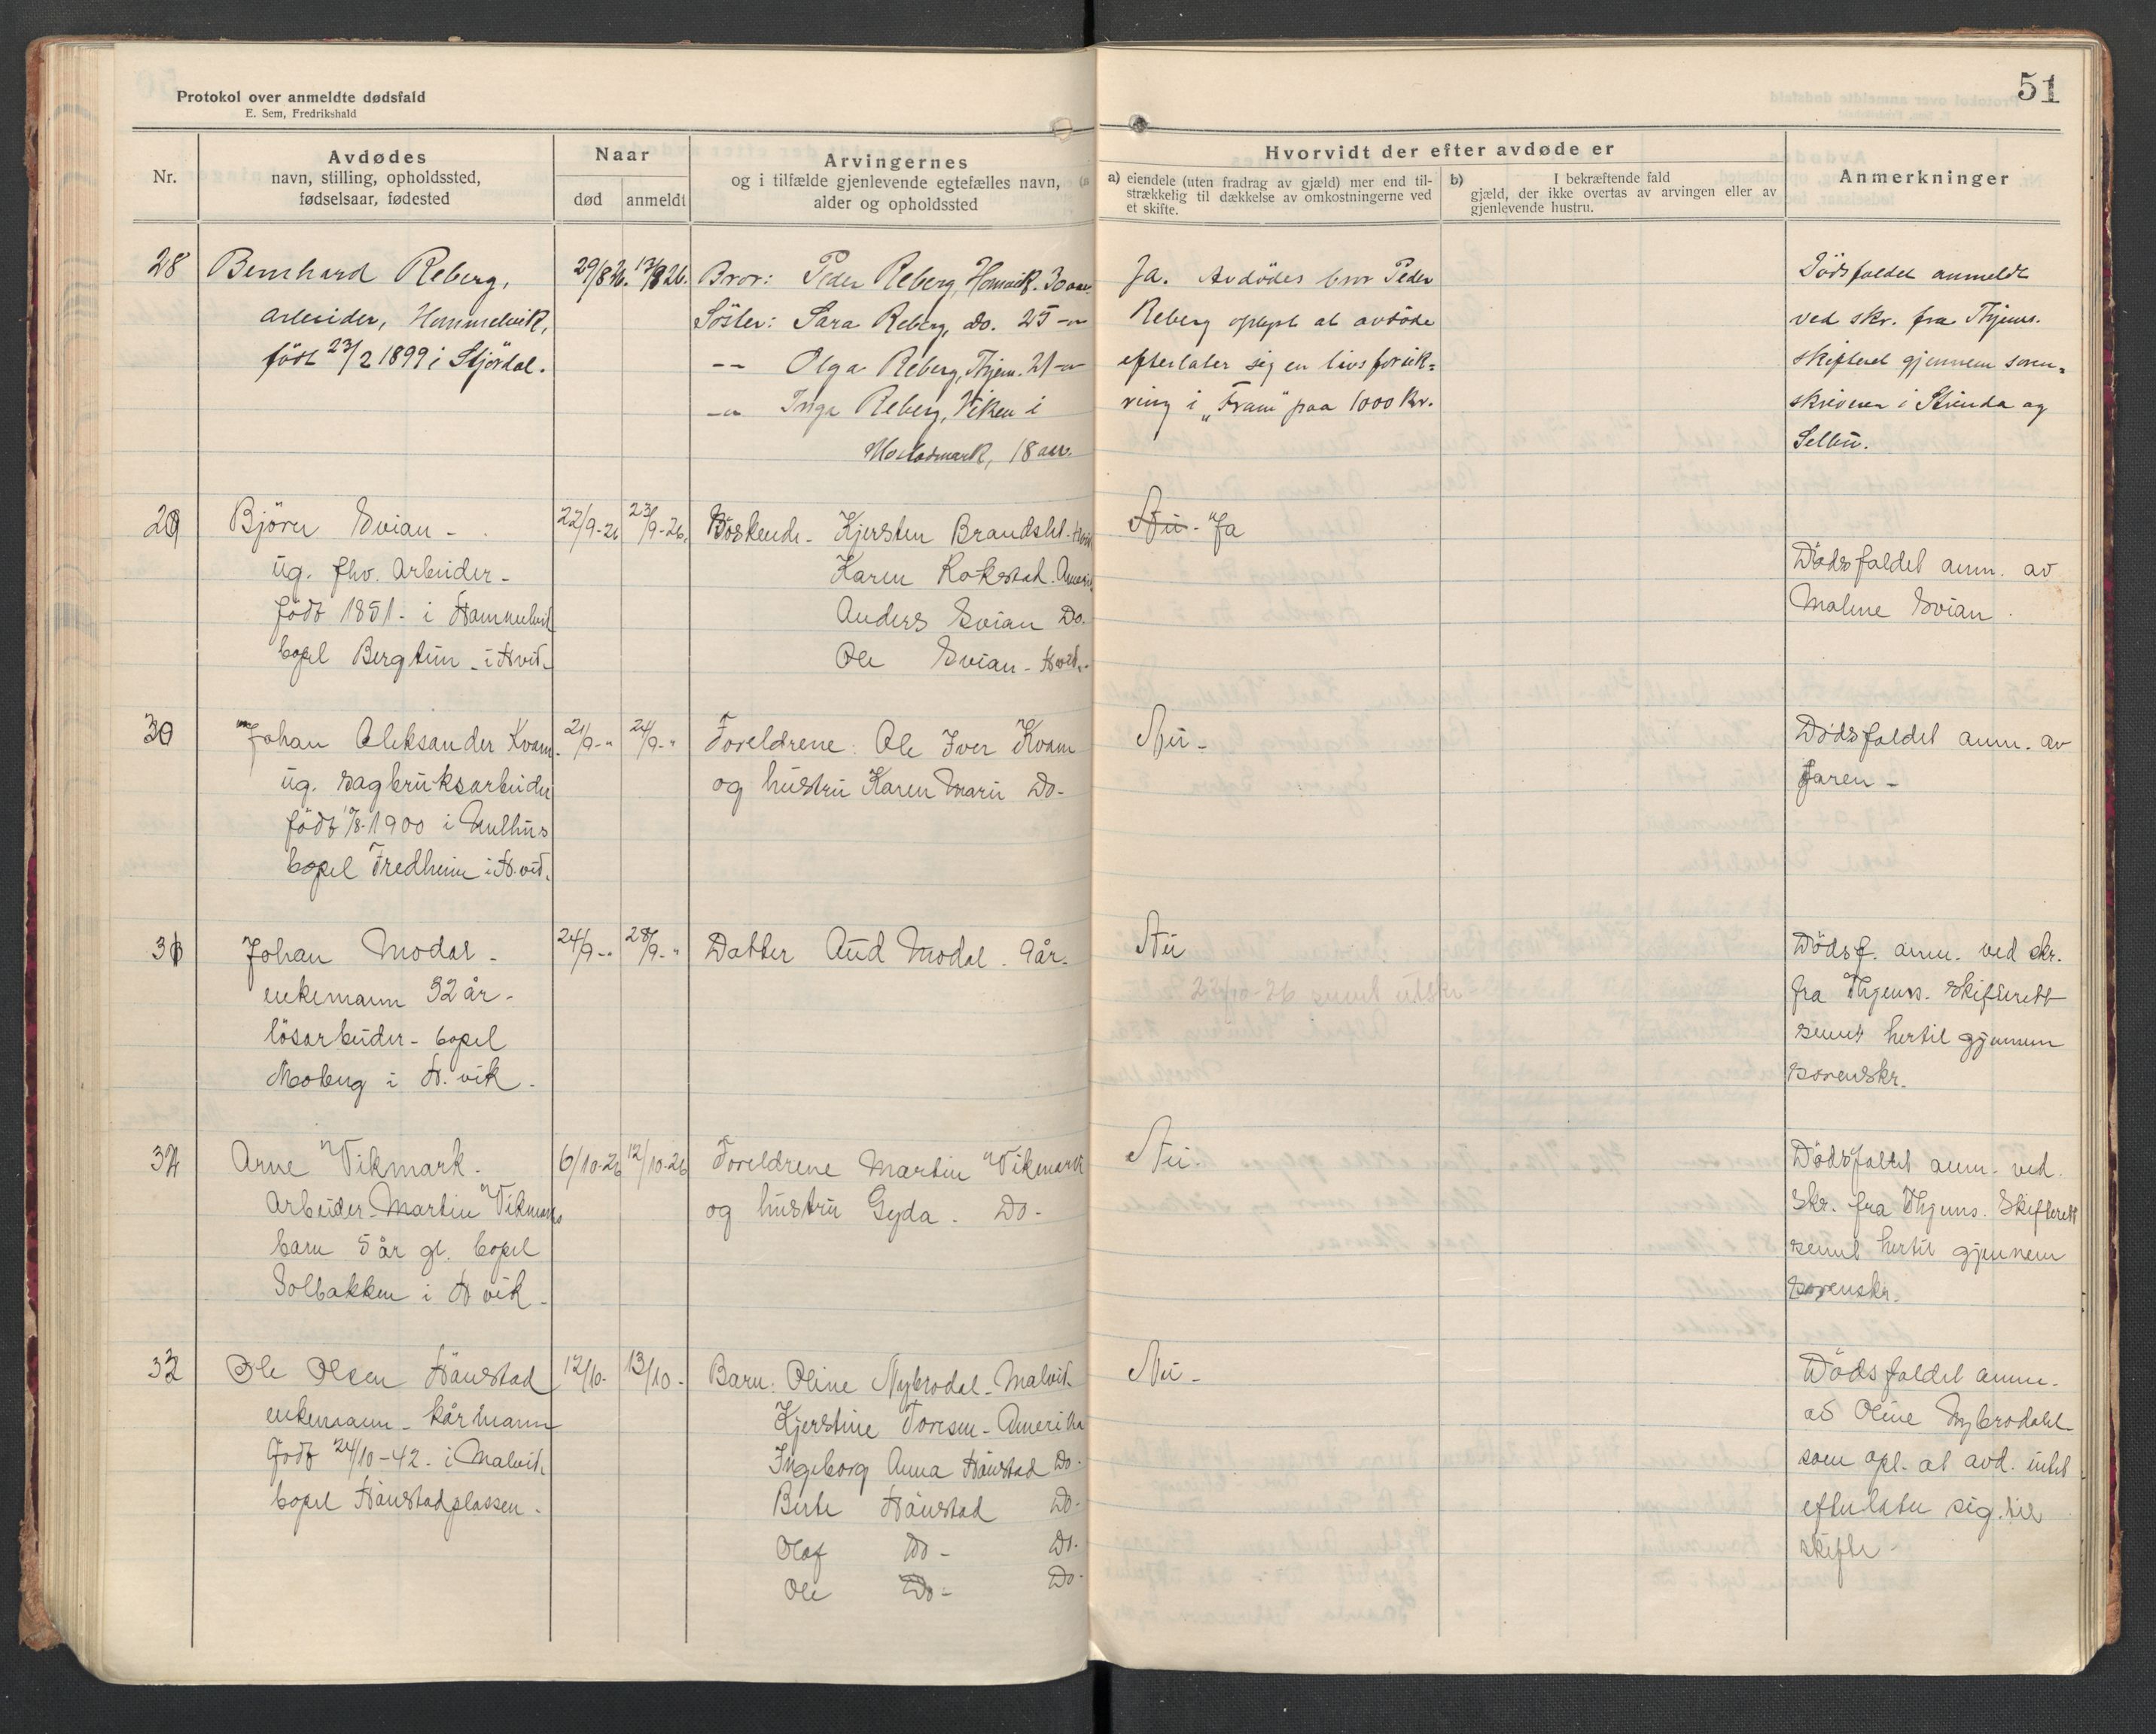 Protokol over anmeldte dødsfald
E. Sem, Fredrikshald
51
Nr.
Avdødes
navn, stilling, opholdssted,
fødselsaar, fødested
Naar
død
anmeldt
Arvingernes
og i tilfælde gjenlevende egtefælles navn,
alder og opholdssted
Hvorvidt der efter avdøde er
a) eiendele (uten fradrag av gjæld) mer end til-
strækkelig til dækkelse av omkostningerne ved
et skifte.
b) I bekræftende fald
gjæld, der ikke overtas av arvingen eller av
gjenlevende hustru.
Anmerkninger
28
Bernhard Reberg,
arbeider, Hommelvik,
født 23/2 1899 i Stjørdal.
29/8 26.
17/9 26.
Bror: Peder Reberg, Homvik. 30 aar.
Søster: Sara Reberg, do. 25 -"-
-"- Olga Reberg, Thjem. 21 -"-
-"- Inga Reberg, Viken i
Mostadmark, 18 aar.
Ja. Avdødes bror Peder
Reberg oplyst at avdøde
efterlater sig en livsforsik=
ring i "Fram" paa 1000 Kr.
Dødsfaldet anmeldt
ved skr. fra Thjems.
skifteret gjennem soren=
skriveren i Strinda og
Selbu.
29
Björn Svian -
ug. fhv. Arbeider -
födt 1851 - i Hommelvik
bopel Bergtun - i Hvik.
22/9-26
23/9-26.
Böskende - Kjersten Brandslet - Hvik
Karen Rokstad. Amerik.
Anders Svian Do.
Ole Svian - Hvik.
Nei - Ja
Dödsfaldet anm. av
Malene Svian.
30
Johan Aleksander Kvam -
ug. sagbruksarbeider
födt 17/8-1900 i Melhus
bopel Fredheim i H.vik.
21/9-"
24/9-"
Foreldrene: Ole Iver Kvam
og hustru Karen Marie Do-
Nei -
Dödsfaldet anm. av
faren -
31
Johan Modal -
enkemann 32 år -
lösarbeider - bopel
Moberg i H.vik -
24/9-"
28/9-"
Datter Aud Modal. 9 år.
Nei
22/10-26 sendt utskr
Dödsf. anm. ved skr.
fra Thjems. Skifterett
sendt hertil gjennem
sorenskr.
32
Arne Vikmark -
Arbeider Martin Vikmarks
barn 5 år gl. bopel
Solbakken i H vik -
6/10-26
12/10-26
Foreldrene Martin Vikmark
og hustru Gyda - Do -
Nei -
Dödsfaldet anm. ved
skr. fra Thjems. Skifterett
sendt hertil gjennem
sorenskr.
33
Ole Olsen Hånstad
enkemann - kårmann
Födt 24/10-42 - i Malvik
bopel Hånstadplassen -
12/10-
13/10-
Barn: Oline Nybrodal - Malvik
Kjerstine Toresen - Amerika
Ingeborg Anna Hånstad Do -
Berte Hånstad Do -
Olaf Do - Do -
Ole Do - Do -
Nei -
Dödsfaldet anm.
av Oline Nybrodahl
som opl. at avd. intet
efterlater sig til
skifte -